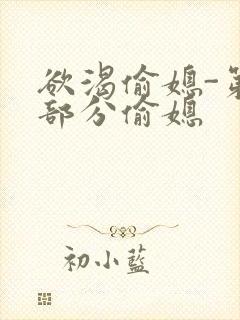 欲渴偷媳-第
部分偷媳
初小藍